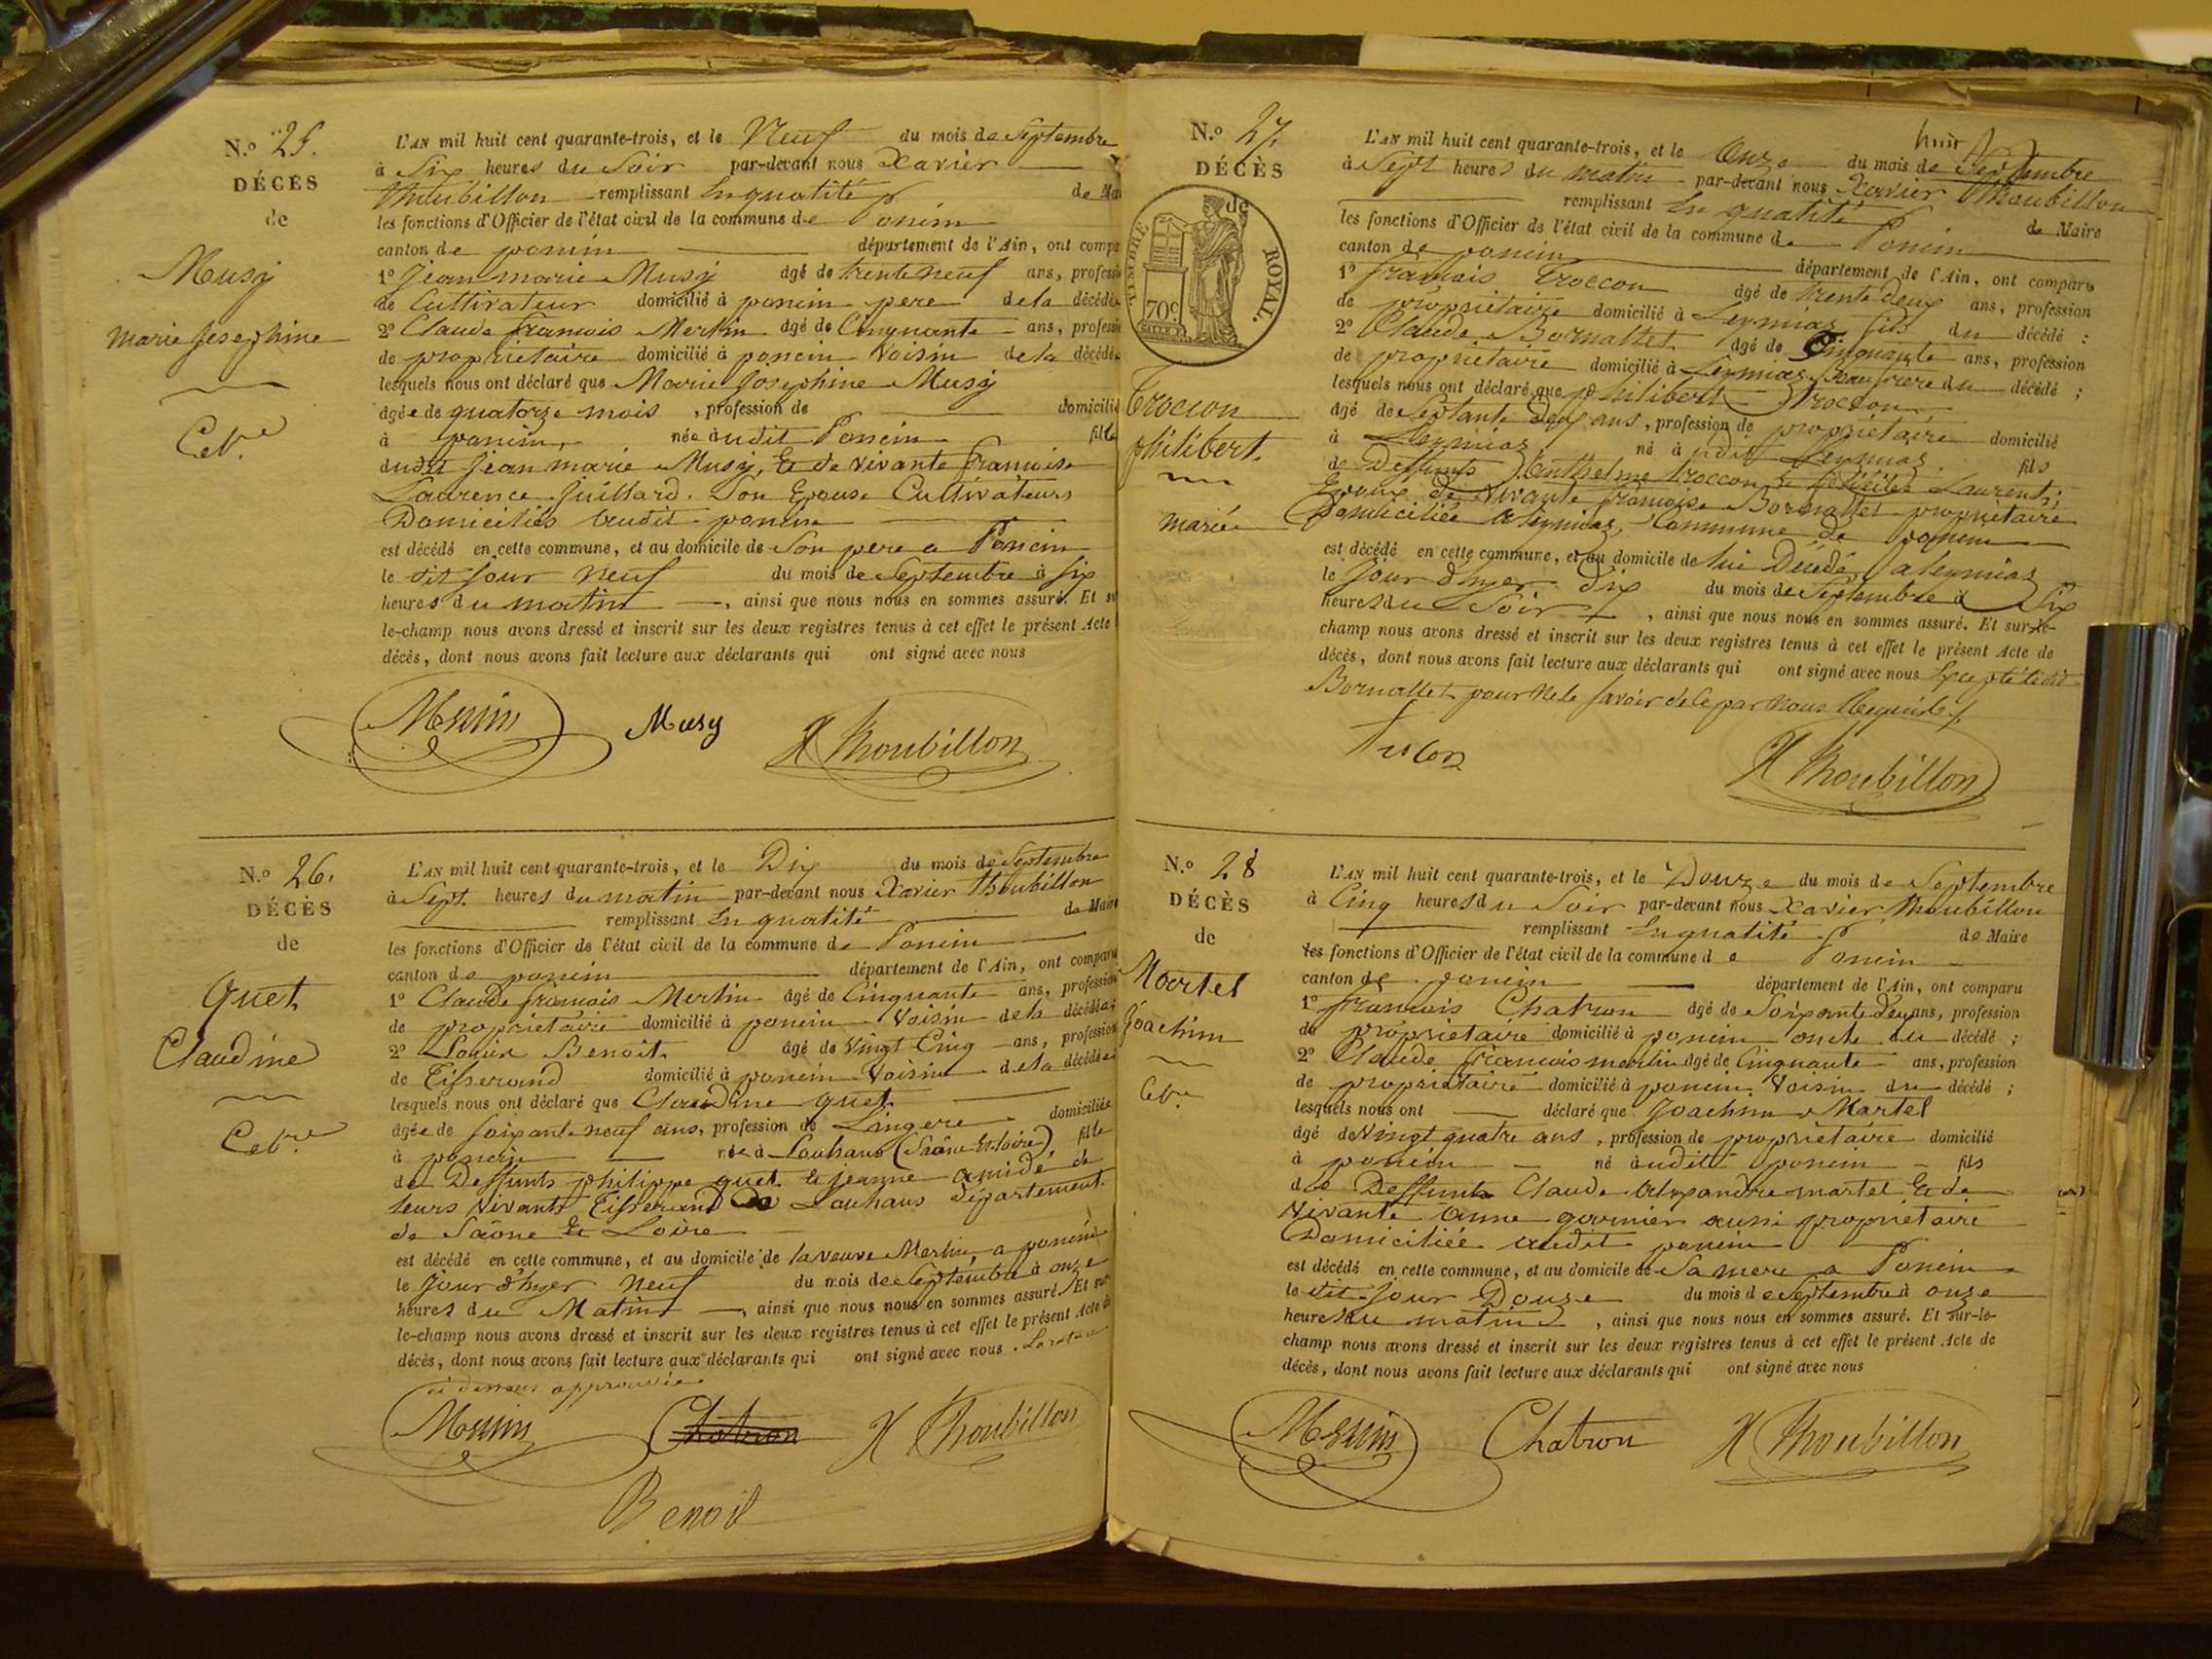 N.º 25.
DÉCÈS
de
Musy
marie Josephine
Celre
L'AN mil huit cent quarante-trois, et le Neuf du mois de Septembre
à Six heures du Soir par-devant nous Xavier
Thoubillon remplissant En qualité de Mai
les fonctions d'Officier de l'état civil de la commune de Poncin
canton de poncin département de l'Ain, ont compa
1º Jean marie Musy âgé de trente neuf ans, profession
de Cultivateur domicilié à poncin pere de la décédée
2º Claude francois Merlin âgé de Cinquante ans, profession
de propriétaire domicilié à poncin Voisin de la décédée
lesquels nous ont déclaré que Marie Josephine Musy
âgée de quatorze mois , profession de domicilié
à poncin, née audit Poncin fille
dudit Jean marie Musy, Et de vivante francoise
Laurence Juillard. Son Epouse Cultivateurs
Domiciliés audit poncin
est décédé en cette commune, et au domicile de Son pere a Poncin
le dit jour neuf du mois de Septembre à Six
heures du matin , ainsi que nous nous en sommes assuré. Et su
le-champ nous avons dressé et inscrit sur les deux registres tenus à cet effet le présent Acte
décès, dont nous avons fait lecture aux déclarants qui ont signé avec nous
Merlin Musy X Thoubillon
N.º 26.
DÉCÈS
de
Quet
Claudine
Celre
L'AN mil huit cent quarante-trois, et le Dix du mois de Septembre
à Sept heures du matin par-devant nous Xavier Thoubillon
remplissant En qualité de Maire
les fonctions d'Officier de l'état civil de la commune de Poncin
canton de poncin département de l'Ain, ont comparu
1º Claude francois Merlin âgé de Cinquante ans, profession
de propriétaire domicilié à poncin Voisin de la décédée;
2º Benoit âgé de Vingt Cinq ans, profession
de Tisserand domicilié à poncin Voisin de la décédée
lesquels nous ont déclaré que Claudine quet
âgée de soixante neuf ans, profession de Lingere domiciliée
à poncin née à Louhans (Saône Et Loire), fille
de Deffunts philippe quet et jeanne
leurs vivants Tisserand de Louhans Département
de Saône Et Loire
est décédé en cette commune, et au domicile de la veuve Merlin, a poncin
le jour d'hyer neuf du mois de Septembre à onze
heures du Matin , ainsi que nous nous en sommes assuré. Et sur
le-champ nous avons dressé et inscrit sur les deux registres tenus à cet effet le présent Acte de
décès, dont nous avons fait lecture aux déclarants qui ont signé avec nous . La rature
ci dessus approuvée
Merlin Chatron X Thoubillon
Benoit
N.º 27.
DÉCÈS
de
TIMBRE ROYAL.
70c
Troccon
philibert.
marié
L'AN mil huit cent quarante-trois, et le Onze du mois de Septembre
à Sept heures du matin par-devant nous Xavier Thoubillon
remplissant En qualité de Maire
les fonctions d'Officier de l'état civil de la commune de Poncin
canton de poncin département de l'Ain, ont comparu
1º francois Troccon âgé de trente deux ans, profession
de propriétaire domicilié à Leymiaz fils du décédé :
2º Claude Bornallet âgé de Cinquante ans, profession
de propriétaire domicilié à Leymiaz beaufrere du décédé ;
lesquels nous ont déclaré que philibert Troccon
âgé de Septante deux ans, profession de propriétaire domicilié
à Leymiaz, né à udit Leymiaz. fils
de Deffunts Anthelme Troccon et Laurent;
Epoux de vivante francoise Bornallet propriétaire
Domiciliée a Leymiaz, Commune de poncin
est décédé en cette commune, et au domicile de lui Décédé, a leymiaz
le jour d'hyer Dix du mois de Septembre à Six
heures du Soir , ainsi que nous nous en sommes assuré. Et sur-le-
champ nous avons dressé et inscrit sur les deux registres tenus à cet effet le présent Acte de
décès, dont nous avons fait lecture aux déclarants qui ont signé avec nous Excepté ledit
Bornallet pour ne le savoir de ce par nous Requis
X Thoubillon
N.º 28
DÉCÈS
de
Martel
Joachim
Celre
L'AN mil huit cent quarante-trois, et le Douze du mois de Septembre
à Cinq heures du Soir par-devant nous Xavier Thoubillon
remplissant En qualité de Maire
les fonctions d'Officier de l'état civil de la commune de Poncin
canton de poncin département de l'Ain, ont comparu
1º francois Chatron âgé de Soixante deux ans, profession
de propriétaire domicilié à poncin oncle du décédé ;
2º Claude francois merlin âgé de Cinquante ans, profession
de propriétaire domicilié à poncin Voisin du décédé ;
lesquels nous ont déclaré que Joachim Martel
âgé de Vingt quatre ans , profession de propriétaire domicilié
à poncin né audit poncin fils
de Deffunt Claude Alexandre martel Et de
Vivante Anne garnier aussi propriétaire
Domiciliée audit poncin
est décédé en cette commune, et au domicile de Sa mere a Poncin
le dit jour Douze du mois de Septembre à onze
heures du matin , ainsi que nous nous en sommes assuré. Et sur-le-
champ nous avons dressé et inscrit sur les deux registres tenus à cet effet le présent Acte de
décès, dont nous avons fait lecture aux déclarants qui ont signé avec nous
Merlin Chatron X Thoubillon